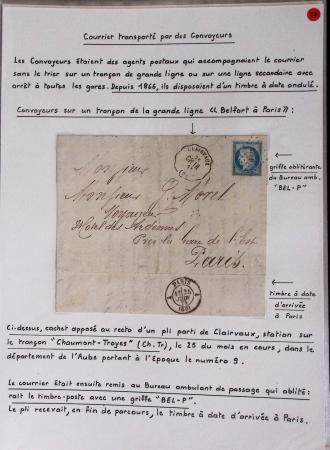 Courrier transporté par des Convoyeurs
Les Convoyeurs étaient des agents postaux qui accompagnaient le courrier
sans le trier sur un tronçon de grande ligne ou sur une ligne secondaire avec
arrêt à toutes les gares. Depuis 1866, ils disposaient d'un timbre à date ondulé.
Convoyeurs sur un tronçon de la grande ligne "Belfort à Paris":
CLAIRVAUX
25
CH.TR
griffe oblitérante
du Bureau amb.
"BEL-P"
Monsieur
Monsieur G. Morel
Voyageur
Hotel des Ardennes
Près la Gare de l'Est
Paris.
PARIS
timbre à date
d'arrivée
à Paris
Ci-dessus, cachet apposé au recto d'un pli parti de Clairvaux, station sur
le tronçon "Chaumont-Troyes" (Ch.Tr), le 25 du mois en cours, dans le
département de l'Aube portant à l'époque le numéro 9.
Le courrier était ensuite remis au Bureau ambulant de passage qui oblité=
rait le timbre-poste avec une griffe "BEL-P".
Le pli recevait, en fin de parcours, le timbre à date d'arrivée à Paris.